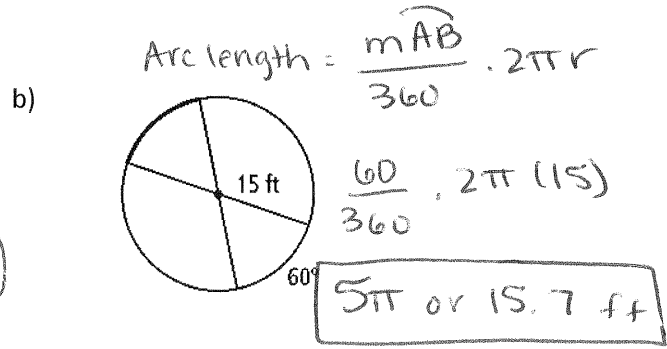 Arc length = mAB/360 · 2πr
b)
15 ft
60/360 · 2π (15)
60°
5π or 15.7 ft